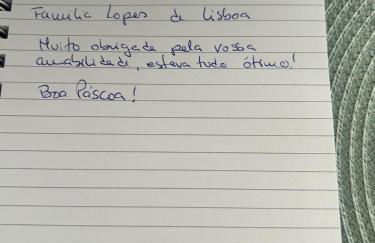 Familia Lopes de Lisboa
Muito obrigada pela vossa
amabilidade, estava tudo ótimo!
Boa Páscoa!